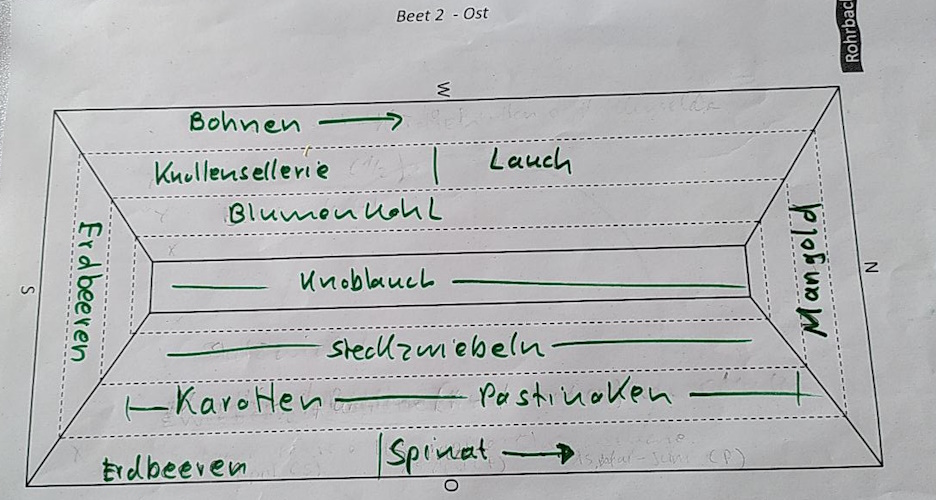 Beet 2 - Ost
W
Bohnen →
Knollensellerie | Lauch
Blumenkohl
Erdbeeren
Mangold
S
N
Knoblauch
Steckzwiebeln
Karotten Pastinaken
Erdbeeren | Spinat →
O